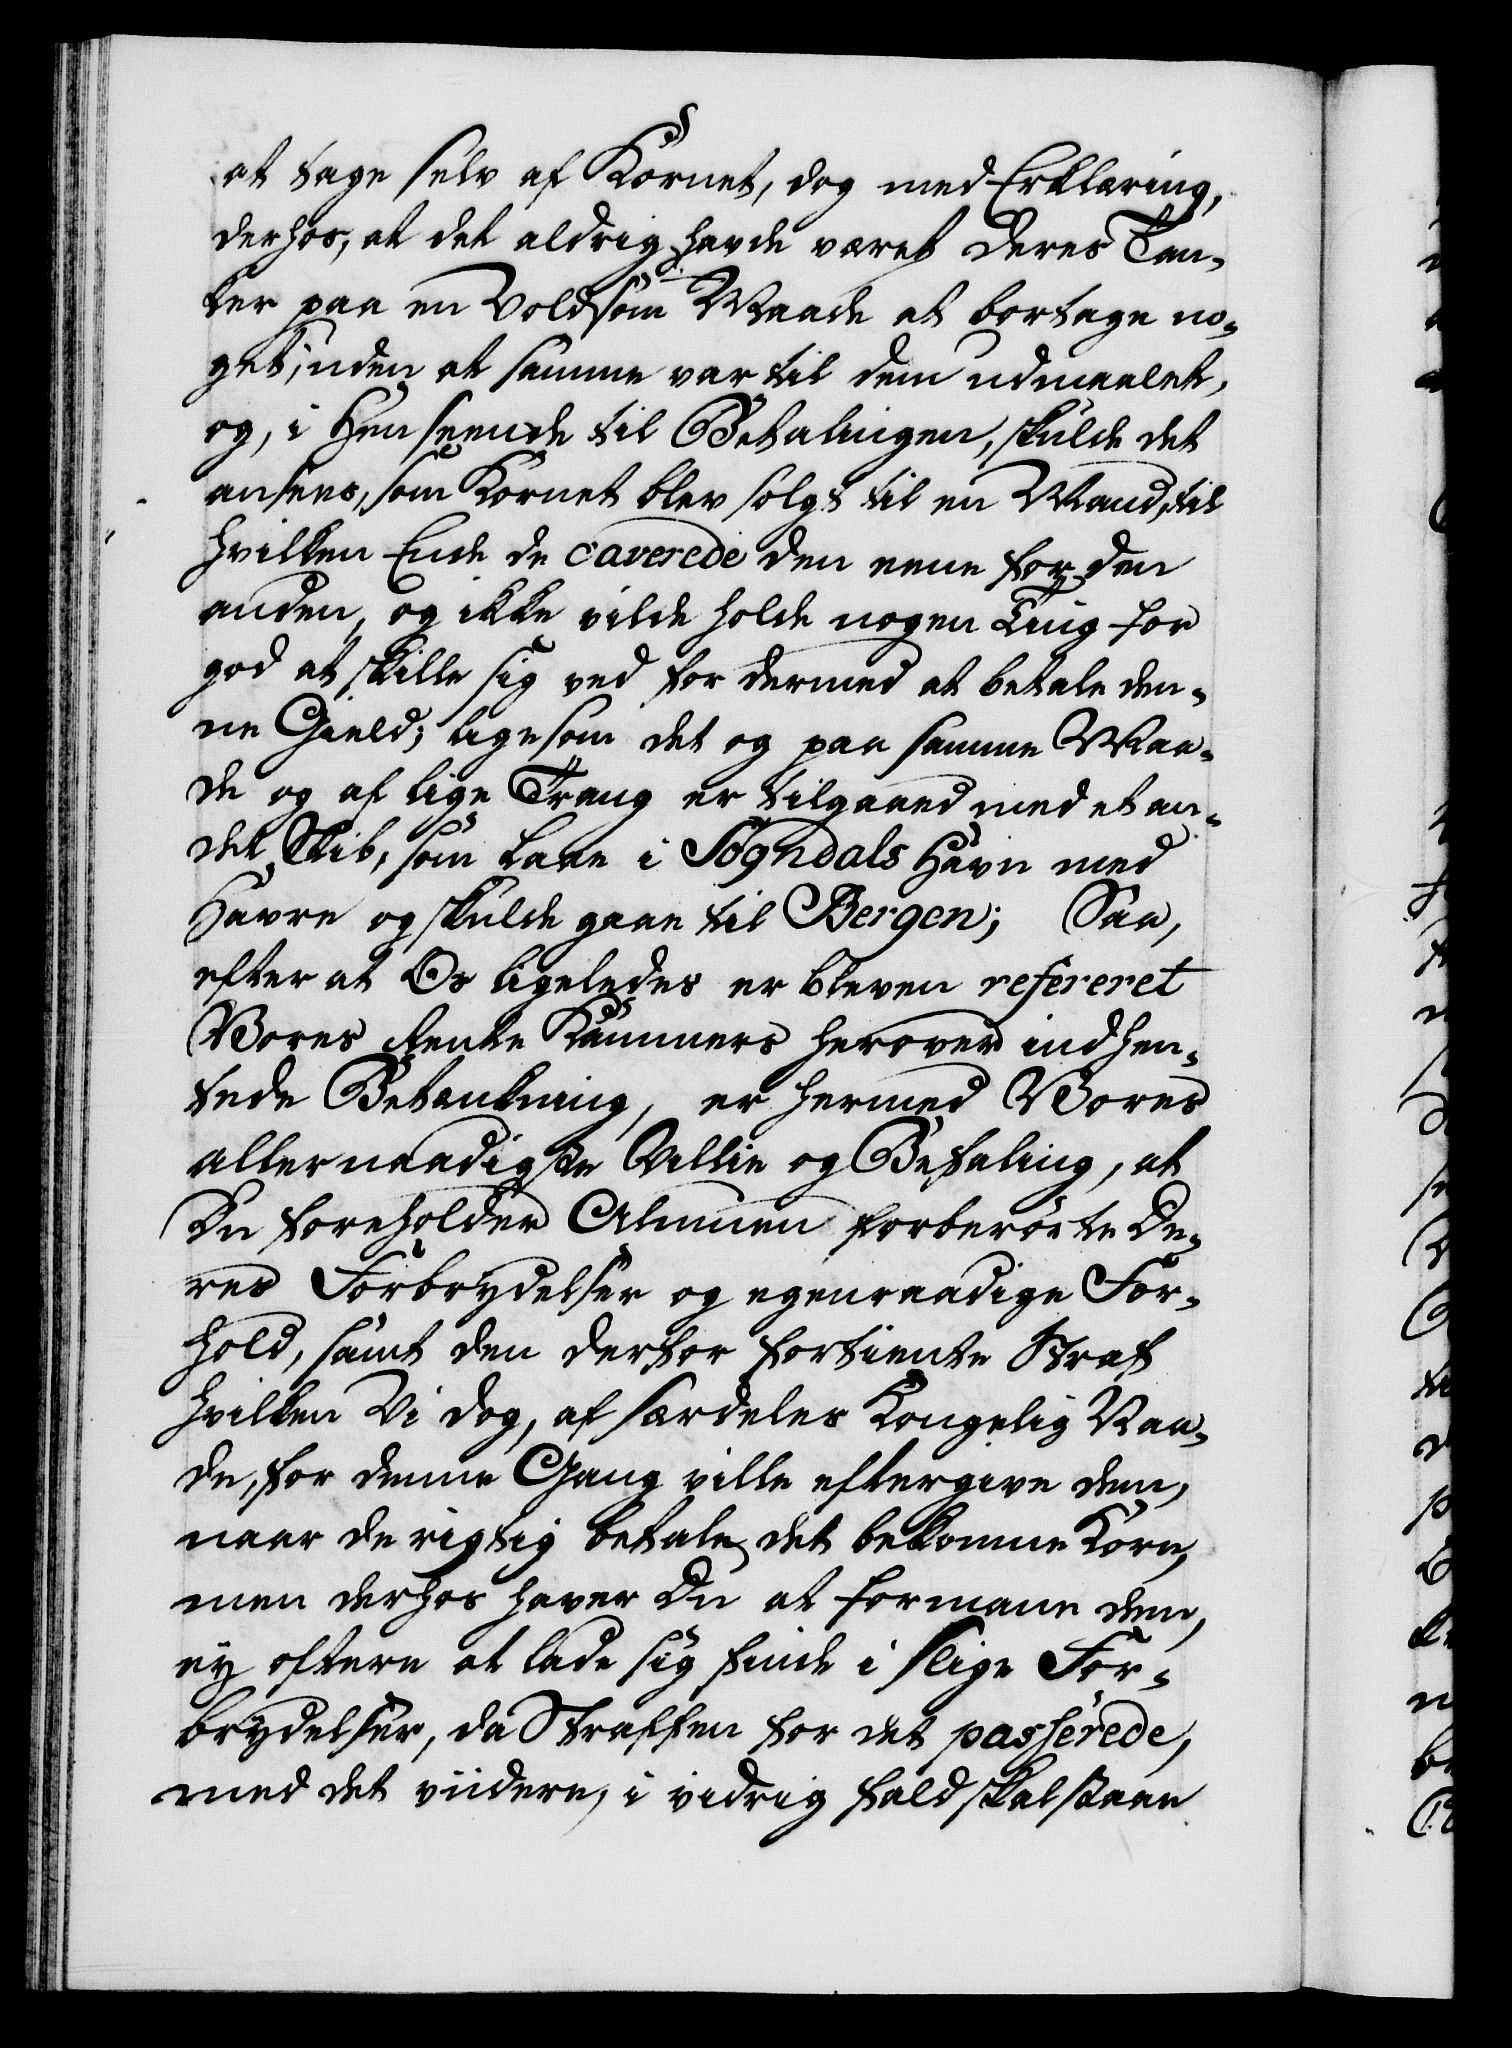 at tage selv af Kornet, dog med Erklæring,
derhos, at det aldrig havde været deres Tan-
ker paa en voldsom Maade at bortage no-
get, uden at samme var til dem udmaalet,
og, i Henseende til Betalingen, skulde det
ansees, som Kornet blev solgt til en Mand, til
hvilken Ende de caverede den eene for den
anden, og ikke vilde holde nogen Ting for
god at skille sig ved for dermed at betale den-
ne Gield; ligesom det og paa samme Maa-
de og af lige Trang er tilgaaed med et an-
det Skib, som laae i Sogndals Havn med
Havre og skulde gaae til Bergen; Saa,
efter at Os ligeledes er bleven refereret
Vores Rente Kammers herover indhen-
tede Betænkning, er hermed Vores
allernaadigste Villie og Befaling, at
Du foreholder Almuen forberørte De-
res Forbrydelser og egenraadige For-
hold, samt den derfor fortiente Straf
hvilken Vi dog, af særdeles Kongelig Naa-
de, for denne Gang ville eftergive dem,
naar de rigtig betale det bekomne Korn,
men derhos haver Du at formane dem,
ey oftere at lade sig finde i slige For-
brydelser, da Straffen for det passerede,
med det viidere, i vidrig fald skal staae